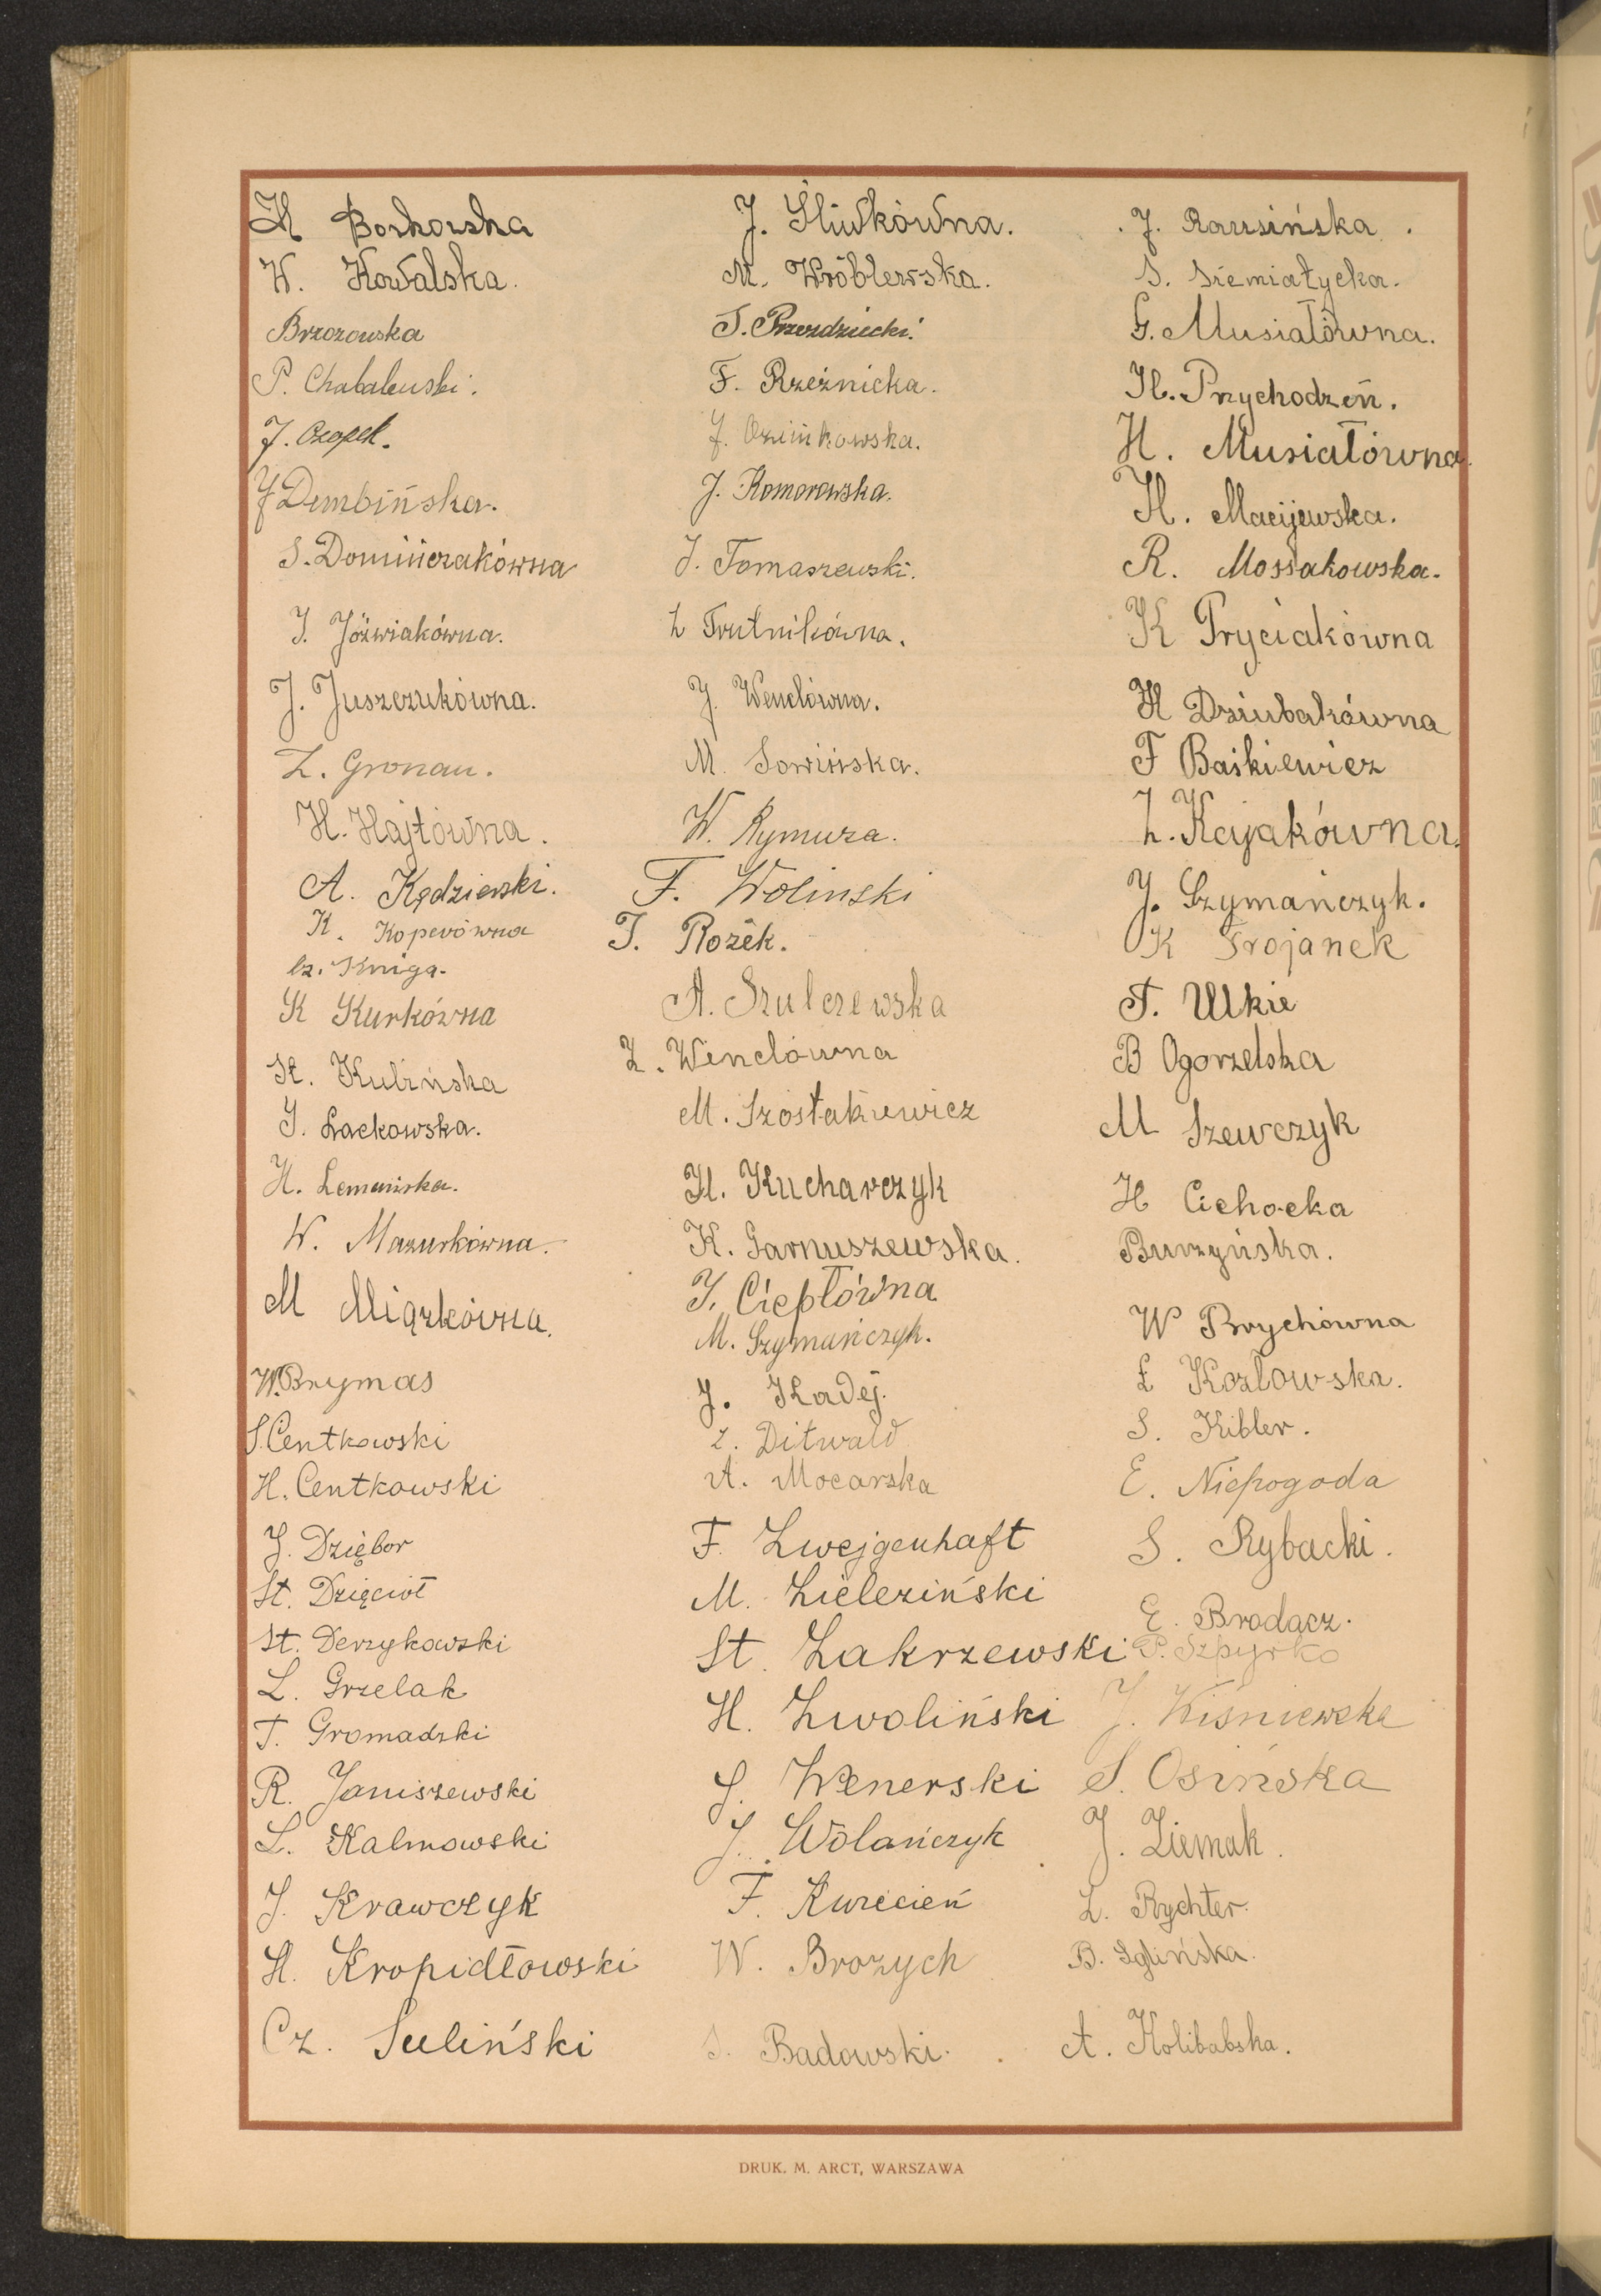 H Borkowska
W. Kowalska.
Brzozowska
P. Chabalewski.
J. Czapek.
J Dembińska.
S. Domińczakówna
J. Jóźwiakówna.
J. Juszczukówna.
Z. Gronau.
H. Hajtówna.
A. Kędzierski.
K. Koperówna
Cz. Kniga.
K Kurkówna
St. Kulińska
J. Lackowska.
H. Lemańska.
W. Mazurkówna.
M Miązkówna.
W. Brymas
S. Centkowski
H. Centkowski
J. Dziębor
St. Dzięcioł
St. Derzykowski
L. Grzelak
T. Gromadzki
R. Janiszewski
L. Kalinowski
J. Krawczyk
H. Kropidłowski
Cz. Suliński
J. Śliwkówna.
M. Wróblewska.
T. Przezdziecki.
F. Rzeźnicka.
J. Ozimkowska.
J. Komorowska.
J. Tomaszewski.
Z Trutnikówna.
J. Wenclówna.
M. Sowińska.
W. Rymuza.
F. Wolinski
T. Rożek.
A. Szulczewska
Z. Wenclówna
M. Szostakiewicz
H. Kucharczyk
K. Garnuszewska.
J. Ciepłówna
M. Szymańczyk.
J. Kadej.
Z. Ditwald
A. Mocarska
F. Zwejgenhaft
M. Zieleziński
St. Zakrzewski
H. Zwoliński
J. Wenerski
J. Wolańczyk
F. Kwiecień
W. Brozych
S. Badowski.
J. Rausińska.
S. Siemiatycka.
G. Musiałówna.
H. Przychodzeń.
H. Musiałówna.
H. Maciejewska.
R. Mossakowska.
K Pryciakówna
H Dziubakówna
F Baśkiewicz
Z. Kajakówna.
J. Szymańczyk.
K Trojanek
T. Ulkie
B Ogorzelska
M Szewczyk
H Cichocka
Burzyńska.
W Brychówna
Ł Kozłowska.
S. Kibler.
E. Niepogoda
S. Rybacki.
E. Brodacz.
P. Szpyrko
J. Wiśniewska
S. Osińska
J. Ziemak.
Z. Rychter.
B. Iglińska.
A. Kolibabska.
DRUK. M. ARCT, WARSZAWA